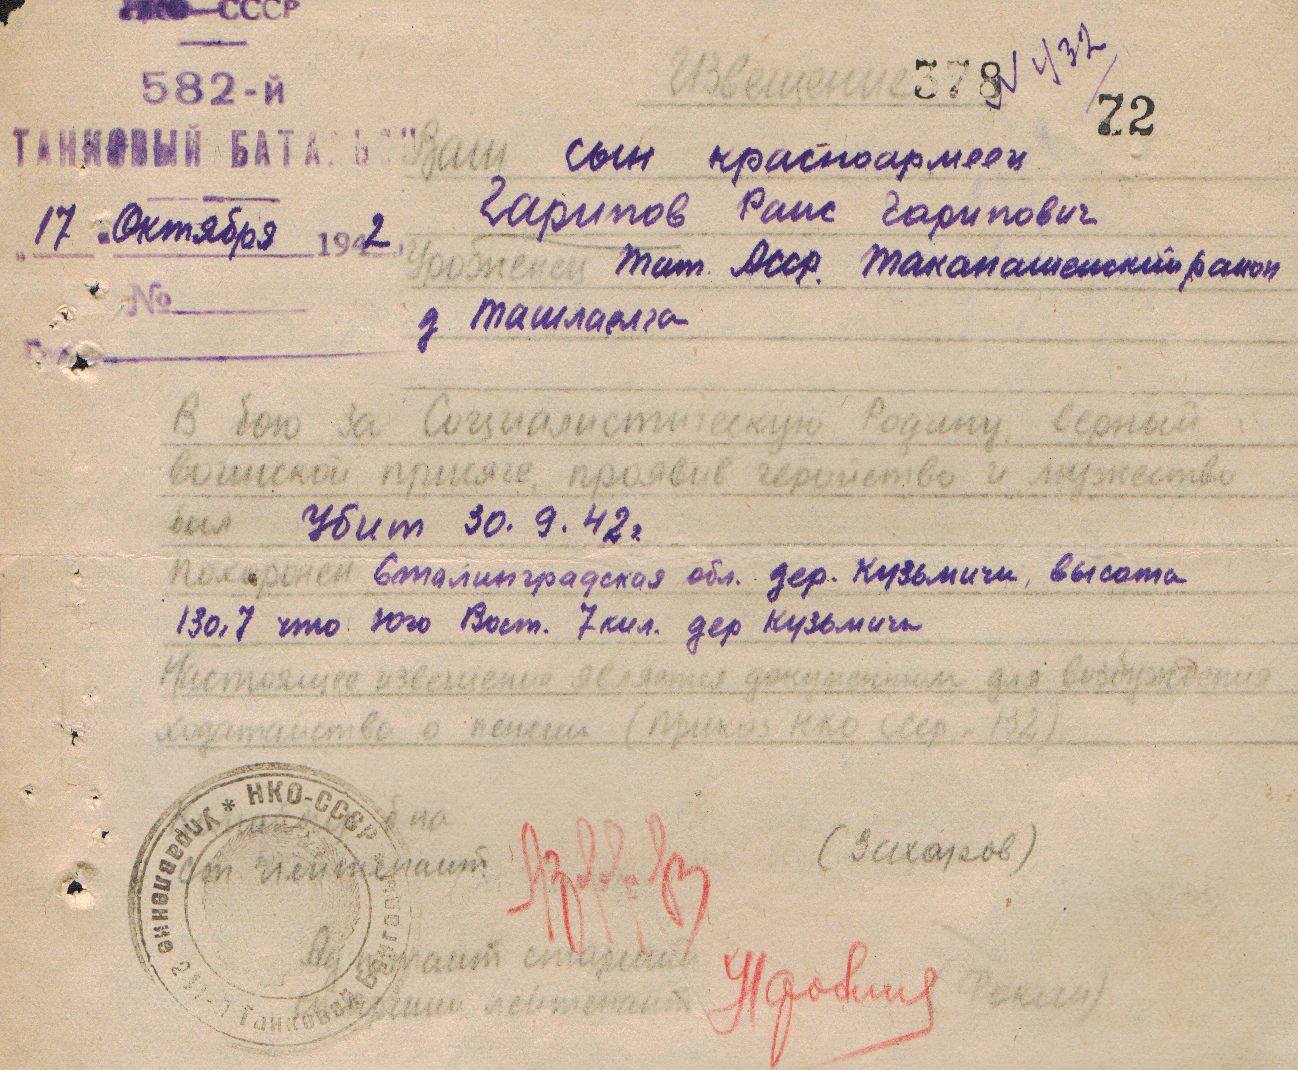 НКО СССР
582-й
ТАНКОВЫЙ БАТАЛЬО
"17" Октября 1942
№
Извещение 378
N 432/
72
Ваш сын красноармеец
Гарипов Раис Гарипович
Уроженец Тат. Асср. Таканышенский район
д Ташлаелга
В бою за Социалистическую Родину, верный
воинской присяге, проявив геройство и мужество
был Убит 30.9.42г.
Похоронен Сталинградская обл. дер. Кузьмичи, высота
130,7 что юго Вост. 7 кил. дер Кузьмичи
Настоящее извещение является документом для возбуждения
ходатайства о пенсии (Приказ НКО СССР №132)
Ст лейтенант (Захаров)
Адъютант старший
Старший лейтенант
* НКО-СССР * Управление Танковой Бригады